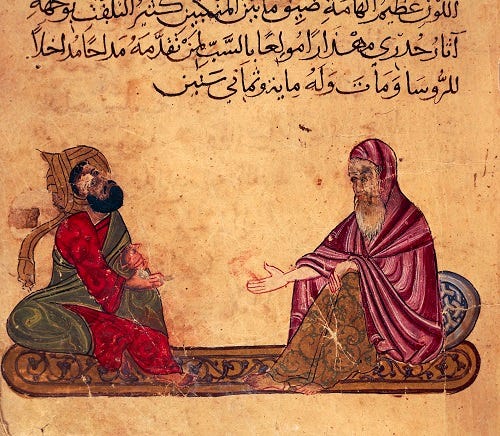 اللون عظيم الهامة ضيق ما بين المنكبين كثير التلفت بوجهه
آثار جدري مهذارا مولعا بالسب لمن تقدمه مداحا مداخلا
للروسا ومات وله ماية وثماني سنين